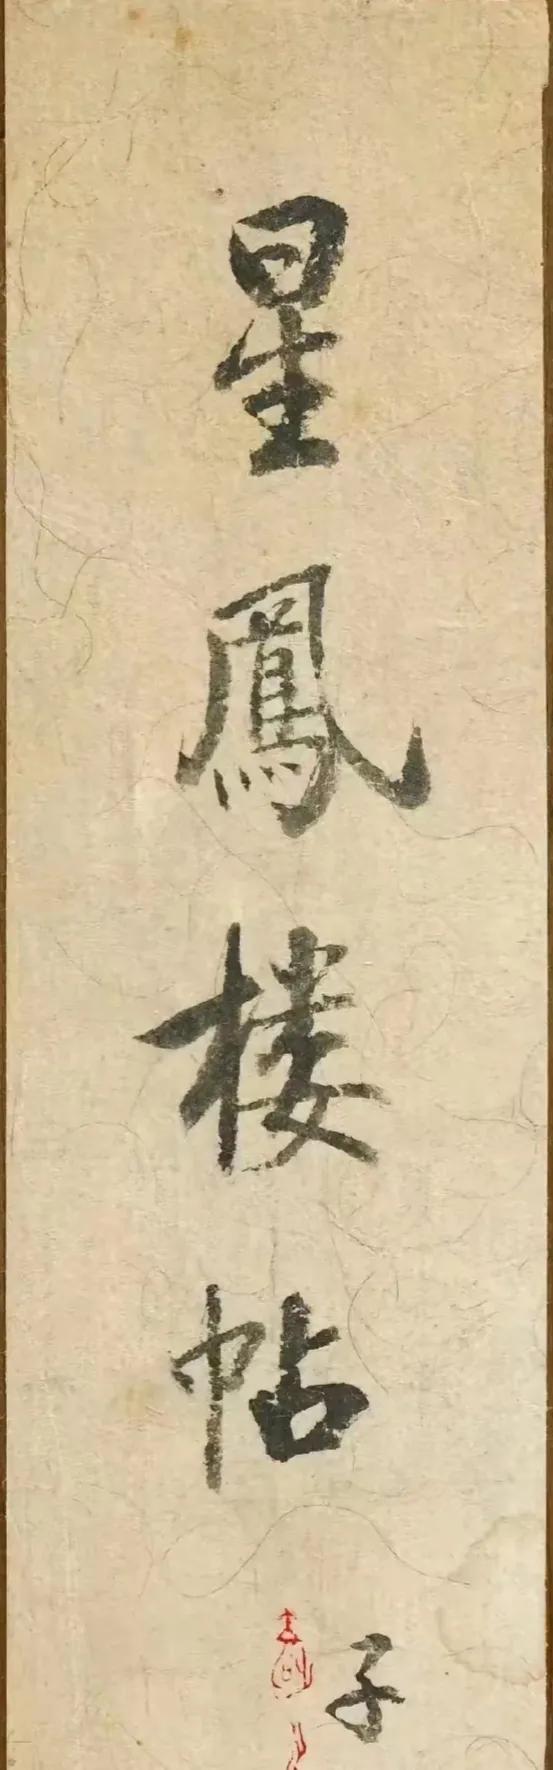 星鳳樓帖
子